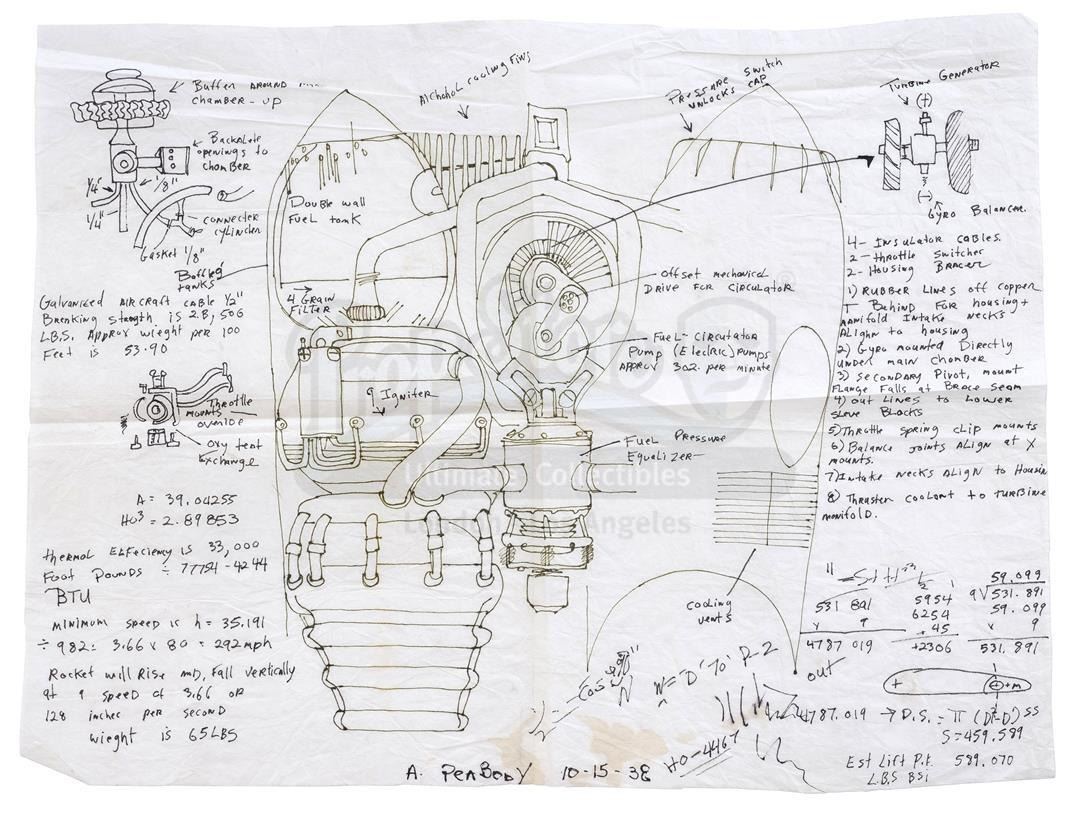 Buffer AROUND
chamber - up
Backplate
openings to
chamber
1/4"
1/8"
1/4"
connecter
cylinder
Gasket 1/8"
Baffled
tanks
Galvanized AIRCRAFT CABLE 1/2"
Breaking strength is 28,500
L.B.S. Approx wieght per 100
Feet is 53.90
Throttle
mounts
override
Oxy feat
Exchange
A = 39.04255
HO³ = 2.89853
thermal Effeciency is 33,000
Foot Pounds ÷ 77754-4244
BTU
minimum speed is h = 35.191
÷ 982 = 3.66 x 80 = 292 mph
Rocket will Rise AND, Fall vertically
at a speed of 3.66 or
128 inches per second
wieght is 65 LBS
Alchohol cooling Fins
Double wall
Fuel tank
4 GRAIN
FILTER
9 Igniter
PRESSURE SWITCH
UNLOCKS CAP
Offset mechanical
DRIVE FOR CIRCULATOR
Fuel - Circutator
Pump (Electric) Pumps
APPROX 302. per minute
Fuel Pressure
Equalizer
Ultimate Collectibles
London Los Angeles
cooling
vents
TURBINE GENERATOR
(+)
(-)
Gyro Balancer.
4 - INSULATOR CABLES.
2 - Throttle Switches
2 - Housing Braces
1) RUBBER LINES off copper
T Behind FOR housing +
manifold Intake necks
ALIGN to housing
2) Gyro mounted Directly
under main Chamber
3) SECONDARY Pivot, mount
Flange Falls at Brace Seam
4) out Lines to Lower
Sleve Blocks
5) Throttle spring clip mounts
6) Balance joints ALIGN at X
mounts.
7) Intake necks ALIGN to Housin
8) Thruster coolant to turbine
manifold.
531 891
x 9
4787 019
5954
6254
45
+2306
59.099
9√531.891
59.099
x 9
531.891
W = D' TO R-2
out
HO-4467
+
+m
4787.019 → D.S. = π (D²-D) SS
S=459.589
Est Lift P.F. 589.070
L.B.S BSI
A. PeaBoDY 10-15-38